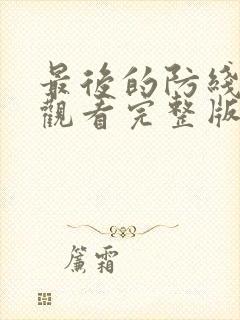 最後的防綫
觀看完整版
簾霜